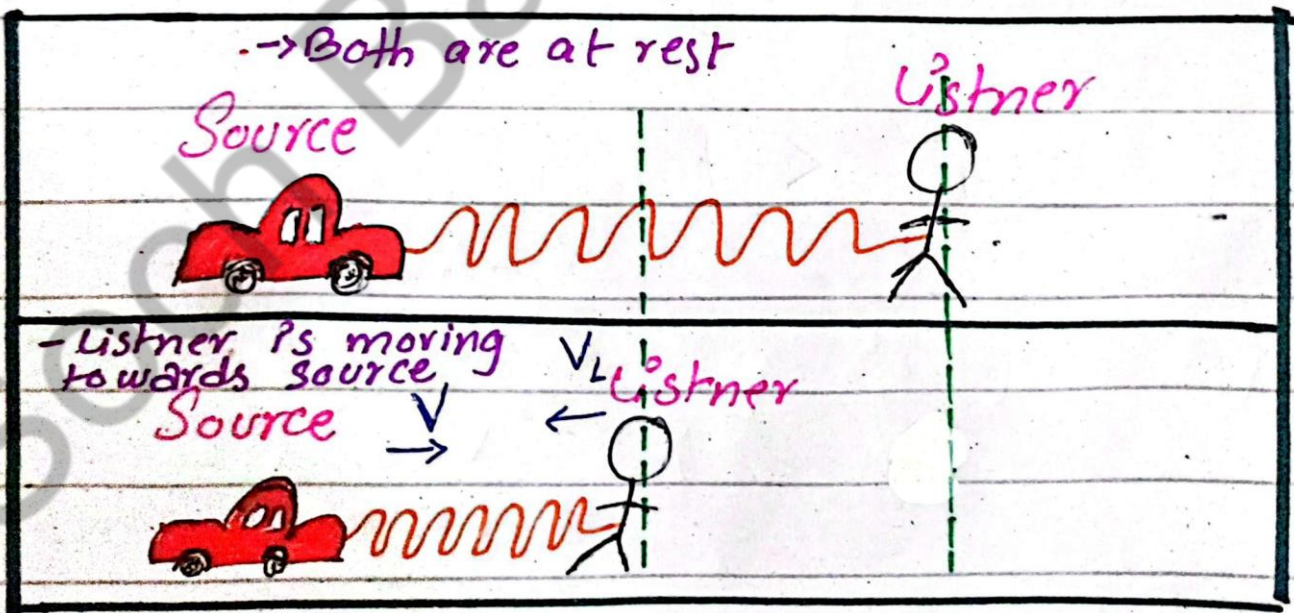 .→Both are at rest
Listner
Source
- Listner is moving
towards source
VL Listner
Source V